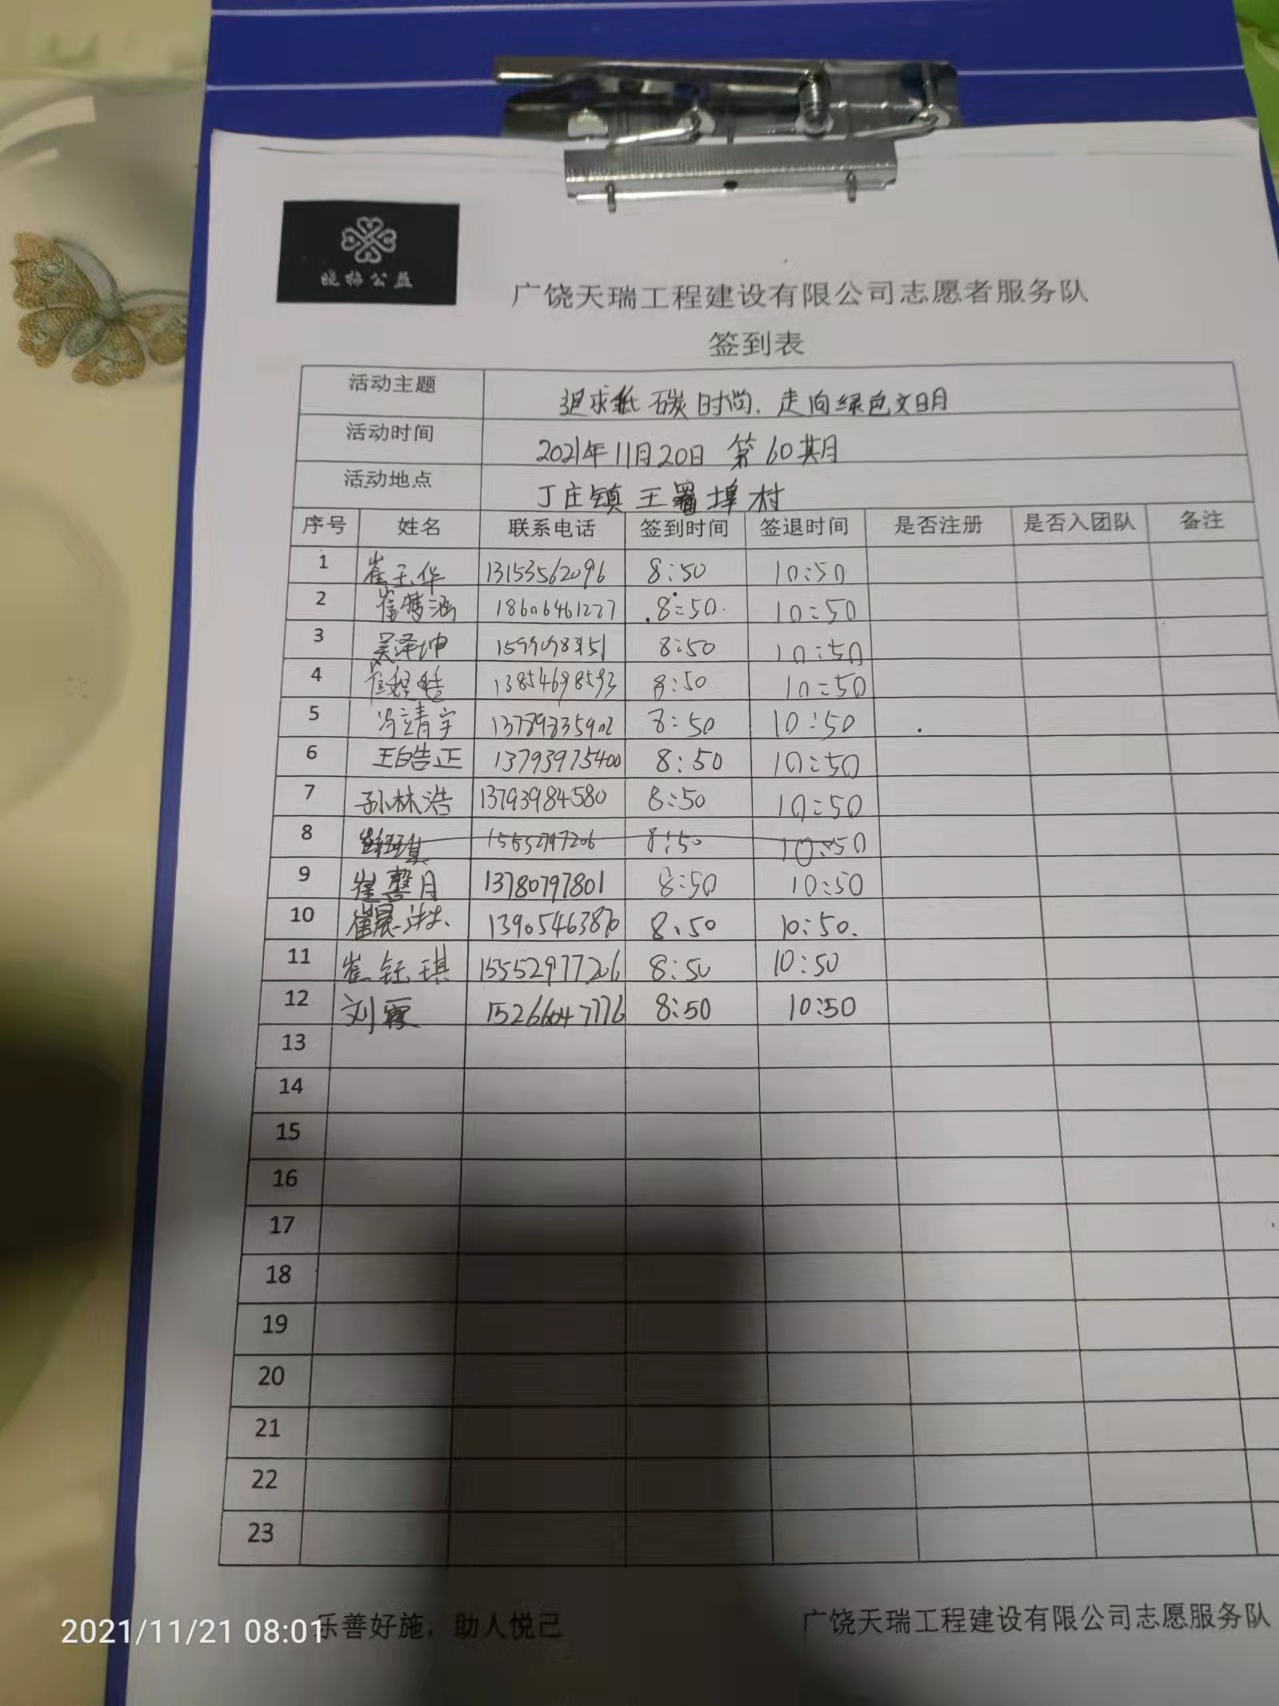 晓梅公益
广饶天瑞工程建设有限公司志愿者服务队
签到表
活动主题 追求低碳时尚.走向绿色文明
活动时间 2021年11月20日 第60期
活动地点 丁庄镇王署埠村
序号 姓名 联系电话 签到时间 签退时间 是否注册 是否入团队 备注
1 崔玉华 13153562096 8:50 10:50
2 18606461277 8:50 10:50
3 吴泽坤 8:50 10:50
4 13854698593 8:50 10:50
5 冯靖宇 8:50 10:50
6 王皓正 13793975400 8:50 10:50
7 孙林浩 13793984580 8:50 10:50
8 8:50 10:50
9 崔馨月 13780797801 8:50 10:50
10 8:50 10:50.
11 崔钰琪 15552977206 8:50 10:50
12 刘霞 15266047776 8:50 10:50
13
14
15
16
17
18
19
20
21
22
23
乐善好施，助人悦己 广饶天瑞工程建设有限公司志愿服务队
2021/11/21 08:01